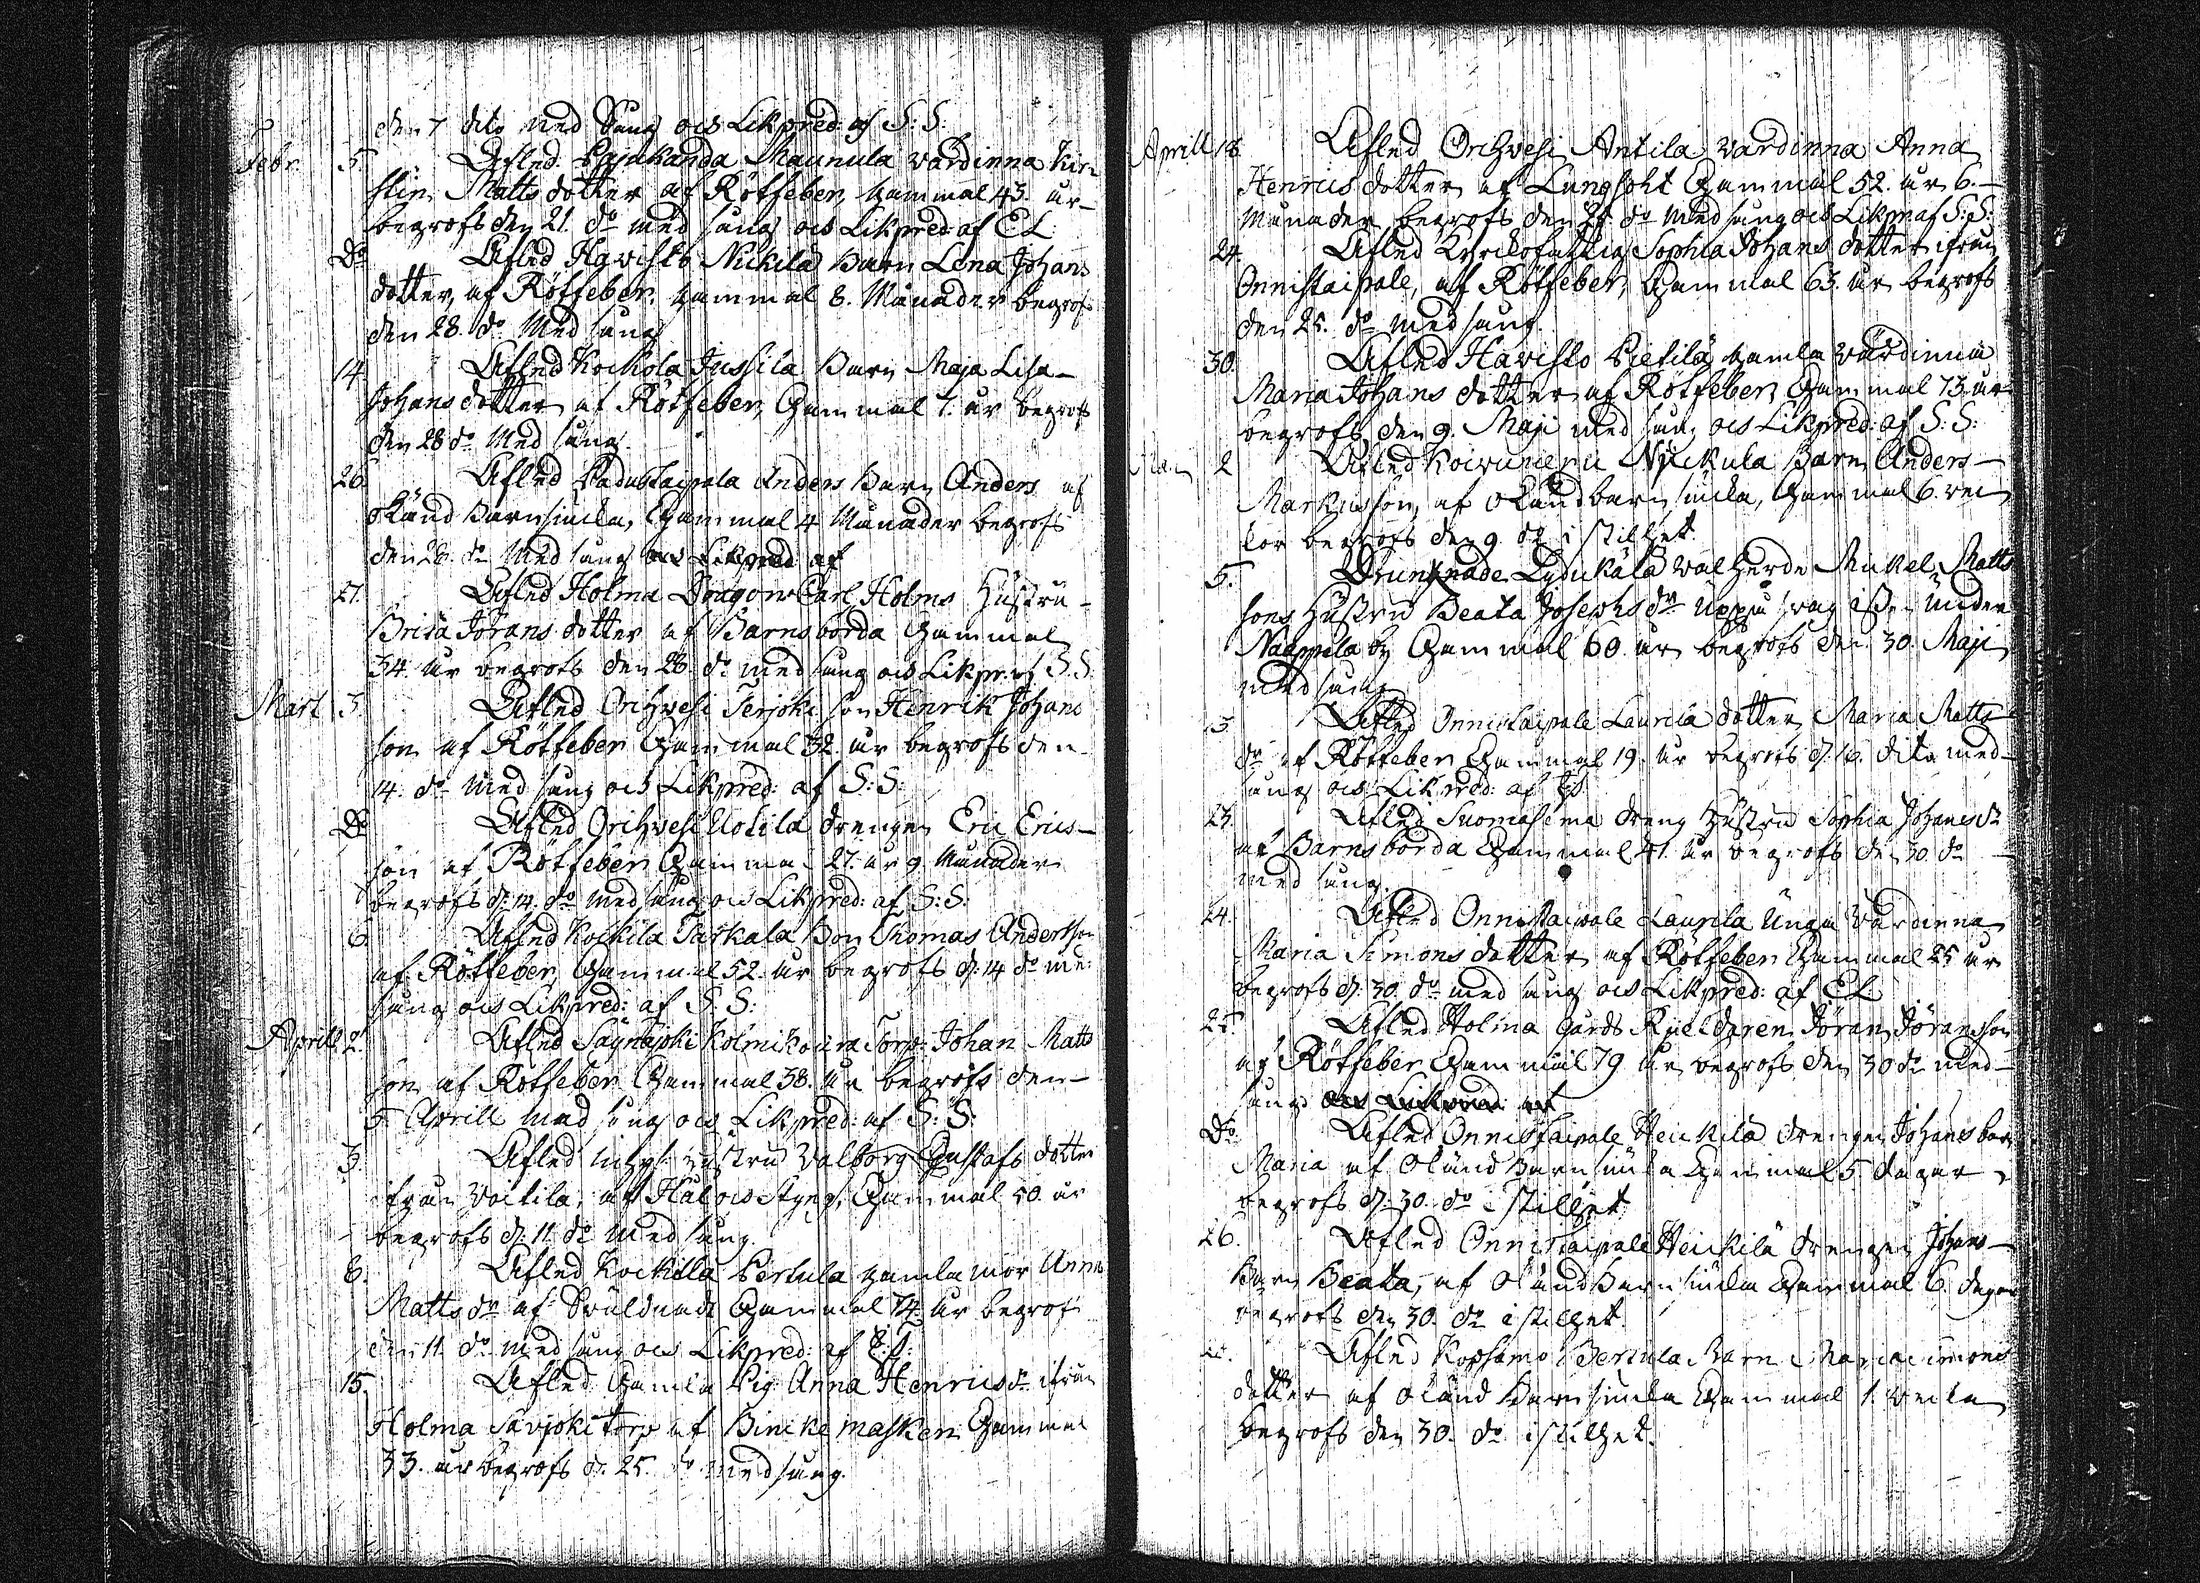 den 7 dito med Sång och Likpred: af S:S:
Febr. 5. Afled Pajukanda Maunula wärdinna Kir-
stin Matts dotter af Rötfeber, gammal 43. år
begrofs den 21. do med sång och Likpred: af EL
Do Afled Havisto Nickilä Barn Lena Johans
dotter, af Rötfeber, gammal 8. Månader begrofs
den 28. do Med sång
14 Afled Kockola Jussila Barn Maja Lisa
Johans dotter af Rötfeber, Gammal 1. år begrofs
den 28 do Med sång
26 Afled Padustaipala Anders Barn Anders af
okänd Barnsiucka, Gammal 4 Månader begrofs
den 28. do Med sång och Likpred af
27. Afled Holma Dragon Carl Holms Hustru
Brita Jörans dotter af Barnsbörda Gammal
34. år begrofs den 28. do med sång och Likpr. af S.S.
Mart 3. Afled Orihvesi Terjoki son Henrik Johans
son af Rötfeber Gammal 32. år begrofs den
14. do Med sång och Likpred: af S:S:
Do Afled Orihvesi Uotila drengen Eric Erics
son af Rötfeber Gammal 27. år 9 Månader
begrofs d: 14. do med sång och Likpred: af S:S:
6. Afled Kockila Taskala Bon Thomas Andersson
af Rötfeber, Gammal 52. år begrofs d: 14 do me:
sång och Likpred: af S. S:
Aprill 2. Afled Säynäjoki Kolmikoura Torp: Johan Matts
son af Rötfeber Gammal 38. år begrofs den
5 Aprill med sång och Likpred: af S:S:
3. Afled inhys: hustru Walborg Gustafs dotter
ifrån Voitila, af Håll och Styng, Gammal 50. år
begrofs d: 11. do Med sång.
8. Afled Kockilla Pertula gamla mor Anna
Matts dr af Svullnade Gammal 74. år begrof
den 11. do med sång och Likpred: af
15. Afled Gamla Pig: Anna Henrics dr ifrån
Holma Savjoki torp af Binicke masken Gammal
33. år begrofs d. 25. do med sång.
Aprill 18. Afled Orihvesi Antila wärdinna Anna
Henrics dotter af Lungsoht Gammal 52. år 6.
Månader begrofs den 25. do med sång och Likpr: af S:S:
24. Afled Kyrckofattig Sophia Johans dotter ifrån
Onnistaipale, af Rötfeber, Gammal 63. år begrofs
den 25. do med sång.
30. Afled Havisto Pietilä gamla wärdinna
Maria Johans dotter af Rötfeber, Gammal 73. år
begrofs den 9. Maji med sång och Likpred: af S:S:
2 Afled Koivuniemi Nyckula Barn Anders
Markusson, af okänd barnsiucka, Gammal 6. wec
kor begrofs den 9. do i stillhet.
5. Drunknade Lydikälä walherde Mikel Matts
sons Hustru Beata Josephs dr uppå svag isen under
Naappila by Gammal 60 år begrofs den 30. Maji
med sång
13 Afled Onnistaipale Laurila dotter Maria Matts
dr af Rötfeber Gammal 19. år begrofs d: 16. dito med
sång och Likpred: af
23. Afled Suomasema dreng Hustru Sophia Johans dr
af Barnsbörda Gammal 41. år begrofs den 30. do
med sång.
24. Afled Onnistaipale Laurila unga wärdinna
Maria Simons dotter af Rötfeber Gammal 25 år
begrofs d: 30. do med sång och Likpred: af EL
25. Afled Holma gårds Jöran Jöransson
af Rötfeber Gammal 79 år begrofs den 30 do med
sång och Likpred: af
Do Afled Onnistaipale Heickilä drengen Johans barn
Maria af okänd Barnsiucka Gammal 5. dagar
begrofs d: 30. do i stillhet
26. Afled Onnistaipale Heickilä drengen Johans
Barn Beata, af okänd Barnsiucka Gammal 6. dagar
begrofs den 30. do i stillhet.
Afled Kopsamo Bertula Barn Maria Simons
dotter af okänd Barnsiucka Gammal 1. wecka
begrofs den 30. do i stillhet.